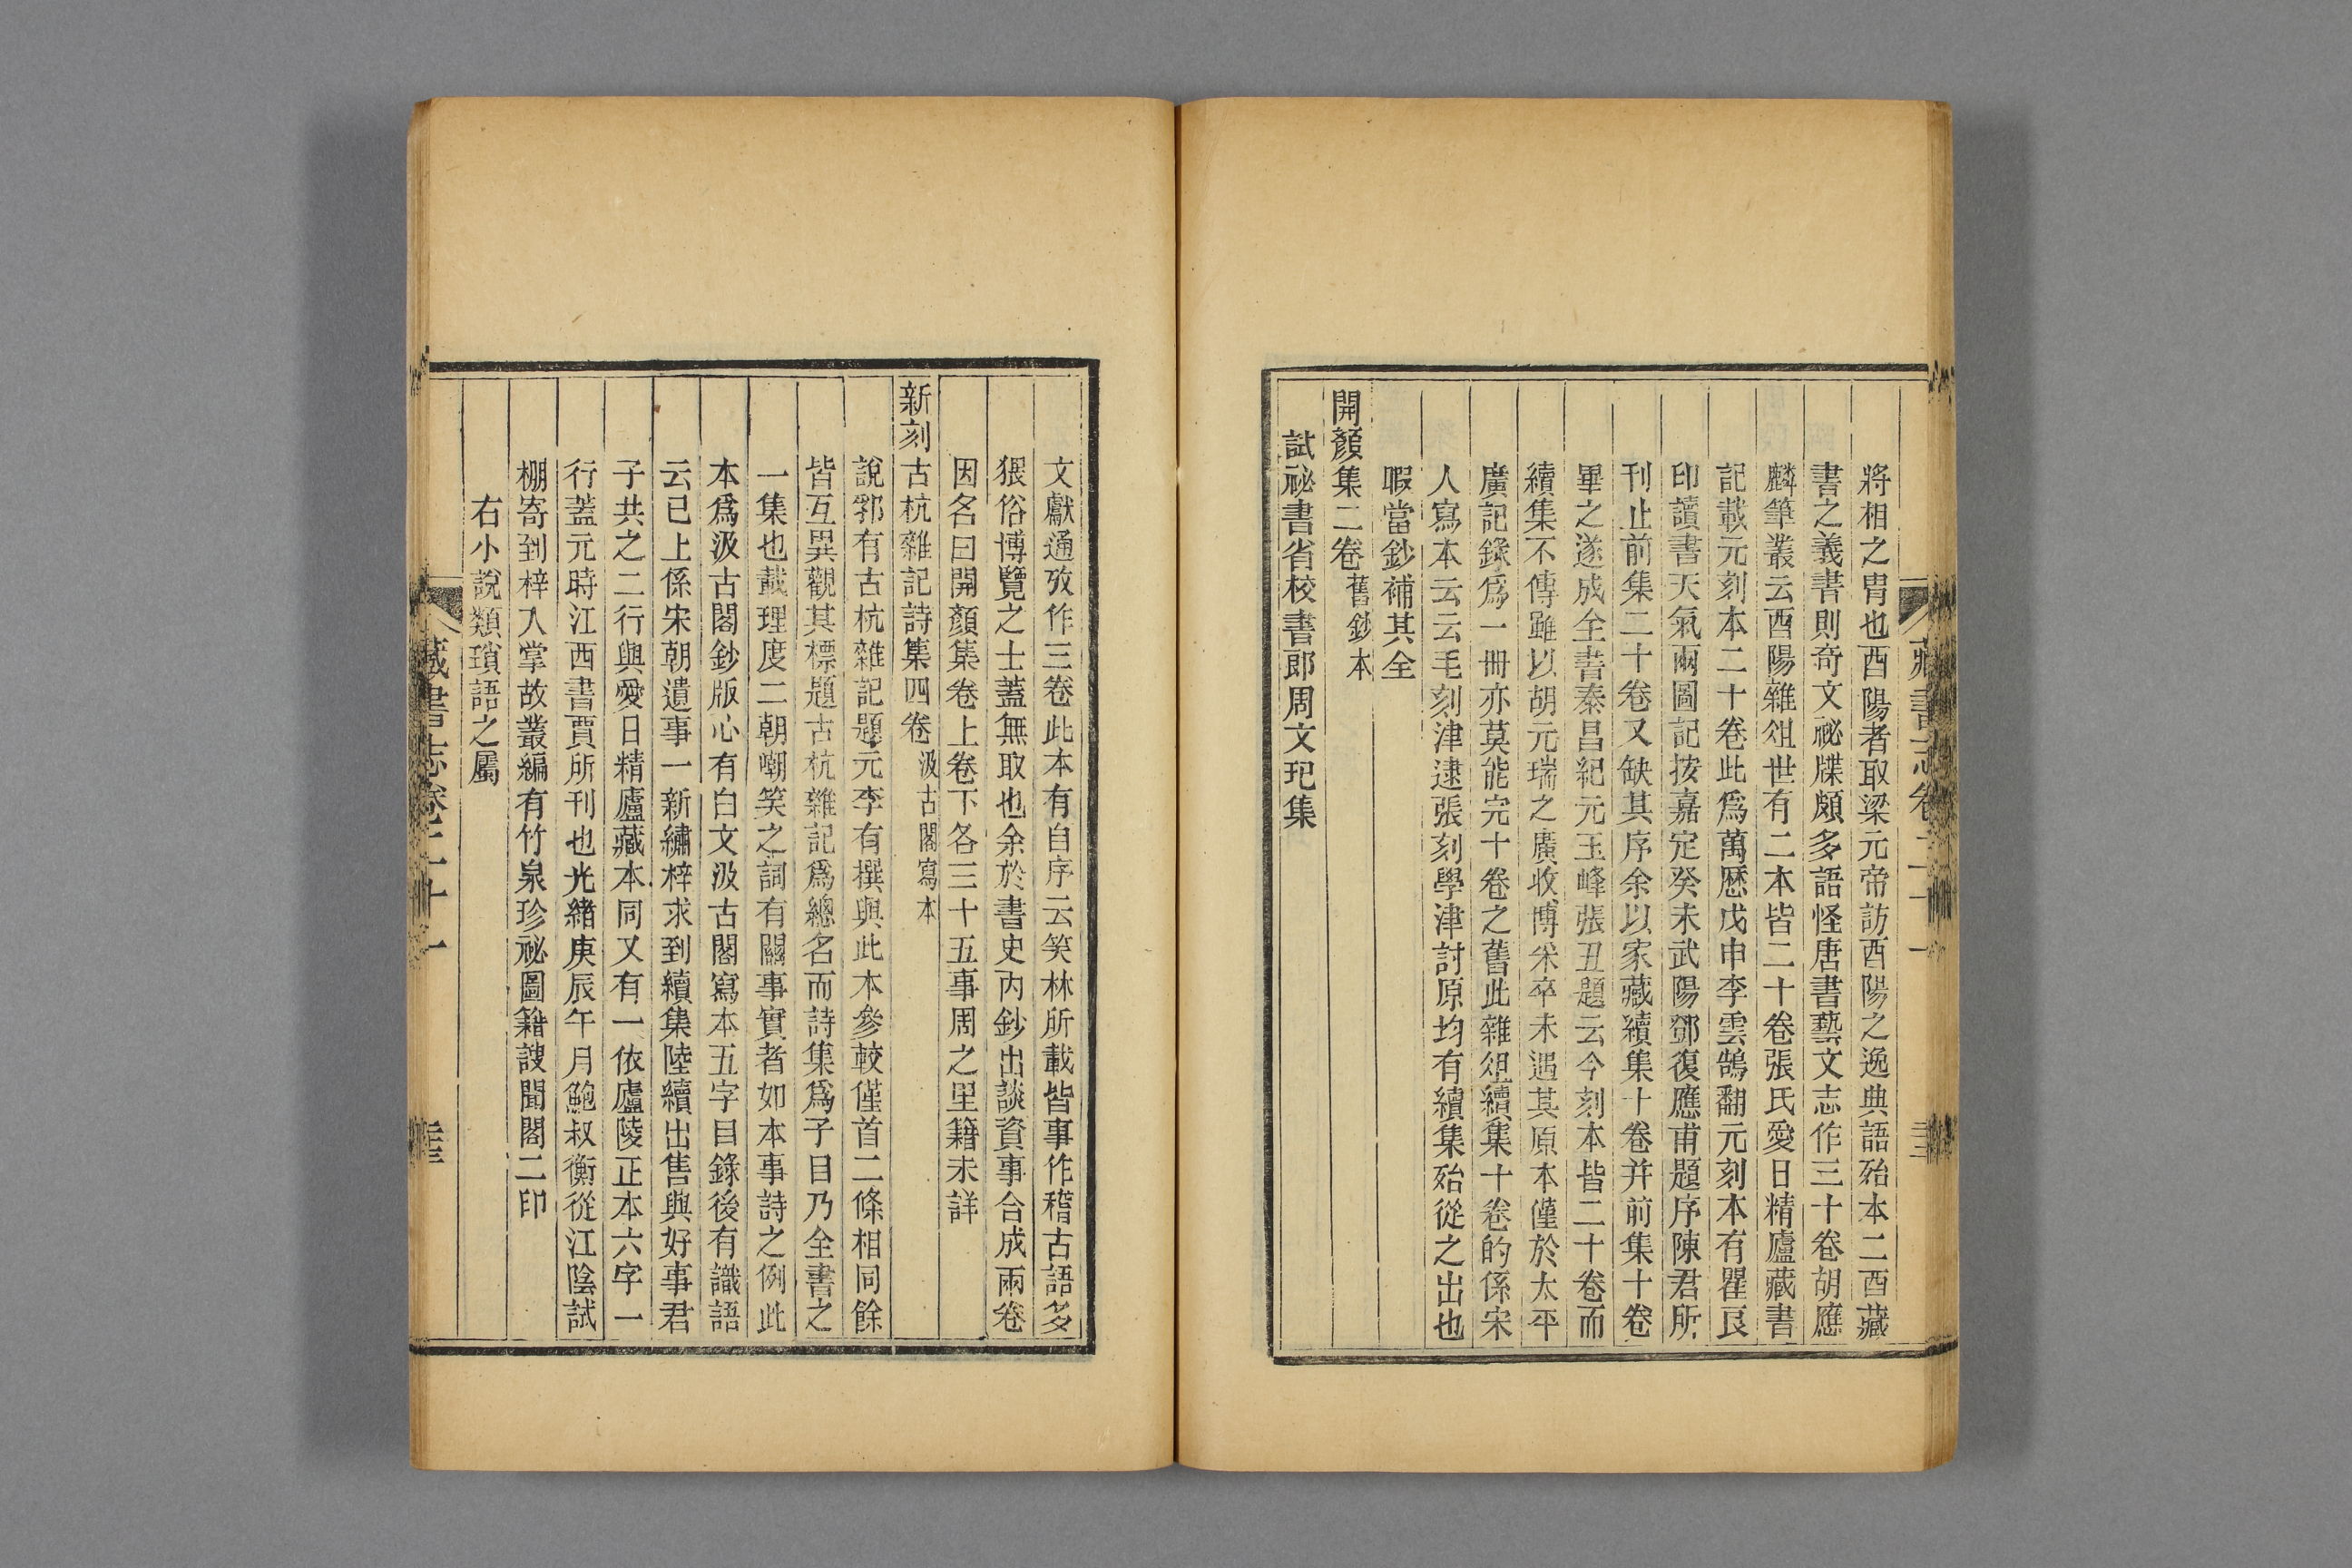 將相之冑也酉陽者取梁元帝訪酉陽之逸典語殆本二酉藏
書之義書則奇文祕牒頗多語怪唐書藝文志作三十卷胡應
麟筆叢云酉陽雜俎世有二本皆二十卷張氏愛日精廬藏書
記載元刻本二十卷此爲萬厯戊申李雲鵠翻元刻本有瞿良
印讀書天氣兩圖記按嘉定癸未武陽鄧復應甫題序陳君所
刊止前集二十卷又缺其序余以家藏續集十卷并前集十卷
畢之遂成全書秦昌紀元玉峰張丑題云今刻本皆二十卷而
續集不傳雖以胡元瑞之廣收博采卒未遇其原本僅於太平
廣記錄爲一冊亦莫能完十卷之舊此雜俎續集十卷的係宋
人寫本云云毛刻津逮張刻學津討原均有續集殆從之出也
暇當鈔補其全
開顏集二卷 舊鈔本
試祕書省校書郎周文玘集
文獻通攷作三卷此本有自序云笑林所載皆事作稽古語多
猥俗博覽之士蓋無取也余於書史內鈔出談資事合成兩卷
因名曰開顏集卷上卷下各三十五事周之里籍未詳
新刻古杭雜記詩集四卷 汲古閣寫本
說郛有古杭雜記題元李有撰與此本參較僅首二條相同餘
皆互異觀其標題古杭雜記爲總名而詩集爲子目乃全書之
一集也載理度二朝嘲笑之詞有關事實者如本事詩之例此
本爲汲古閣鈔版心有白文汲古閣寫本五字目錄後有識語
云已上係宋朝遺事一新繡梓求到續集陸續出售與好事君
子共之二行與愛日精廬藏本同又有一依廬陵正本六字一
行蓋元時江西書賈所刊也光緒庚辰午月鮑叔衡從江陰試
棚寄到梓人掌故叢編有竹泉珍祕圖籍謏聞閣二印
右小說類瑣語之屬
藏書志卷二十一